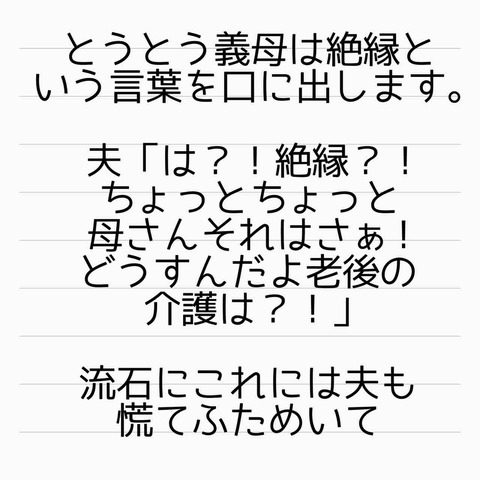 とうとう義母は絶縁と
いう言葉を口に出します。
夫「は？！絶縁？！
ちょっとちょっと
母さんそれはさぁ！
どうすんだよ老後の
介護は？！」
流石にこれには夫も
慌てふためいて